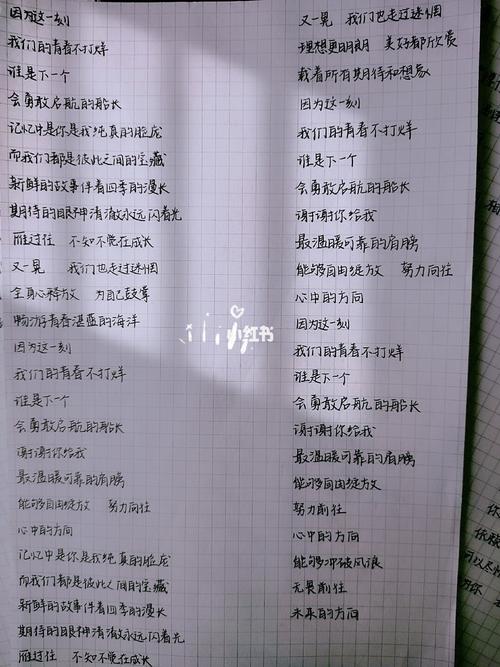 因为这一刻
我们的青春不打烊
谁是下一个
会勇敢启航的船长
记忆中是你是我纯真的脸庞
而我们都是彼此之间的宝藏
新鲜的故事伴着四季的漫长
期待的眼神清澈永远闪着光
雁过往 不知不觉在成长
又一晃 我们也走过迷惘
全身心释放 为自己鼓掌
畅游青春湛蓝的海洋
因为这一刻
我们的青春不打烊
谁是下一个
会勇敢启航的船长
谢谢你给我
最温暖可靠的肩膀
能够自由绽放 努力向往
心中的方向
记忆中是你是我纯真的脸庞
而我们都是彼此之间的宝藏
新鲜的故事伴着四季的漫长
期待的眼神清澈永远闪着光
雁过往 不知不觉在成长
又一晃 我们也走过迷惘
理想更明朗 美好都欣赏
载着所有期待和想象
因为这一刻
我们的青春不打烊
谁是下一个
会勇敢启航的船长
谢谢你给我
最温暖可靠的肩膀
能够自由绽放 努力向往
心中的方向
因为这一刻
我们的青春不打烊
谁是下一个
会勇敢启航的船长
谢谢你给我
最温暖可靠的肩膀
能够自由绽放
努力前往
心中的方向
能够冲破风浪
无畏前往
未来的方向
小红书